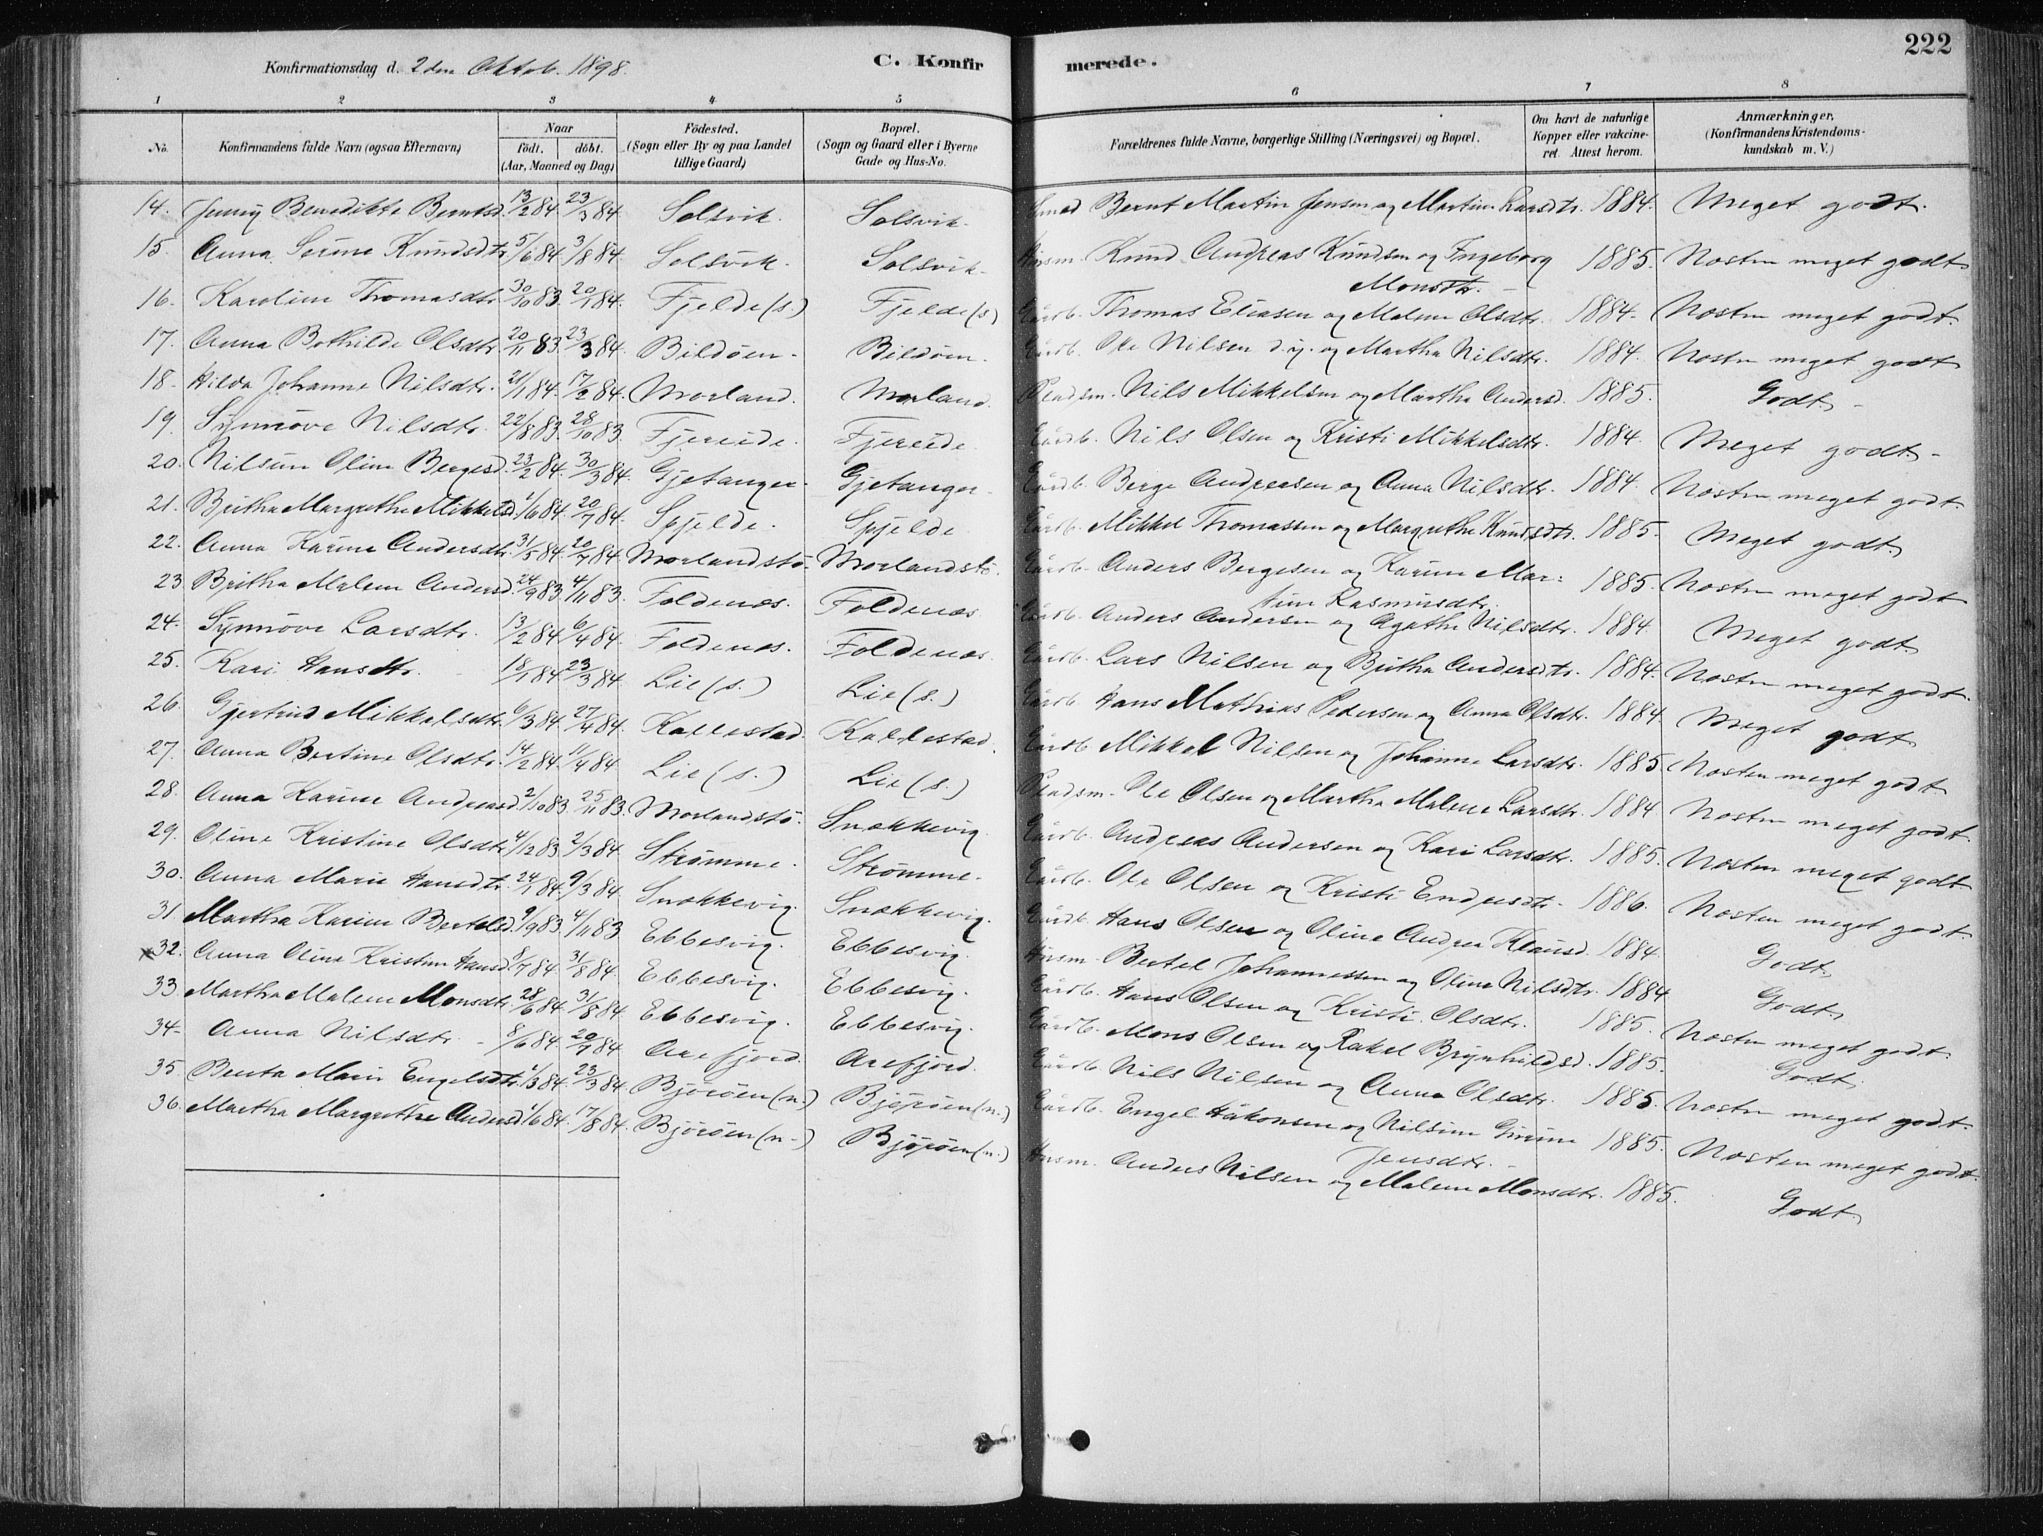 222
Konfirmationsdag d. 2den Oktob. 1898.
C. Konfirmerede.
1 2 3 4 5 6 7 8
No.
Konfirmandens fulde Navn (ogsaa Efternavn)
Naar
födt. döbt.
(Aar, Maaned og Dag)
Födested.
(Sogn eller By og paa Landet
tillige Gaard)
Bopæl.
(Sogn og Gaard eller i Byerne
Gade og Hus-No.
Forældrenes fulde Navne, borgerlige Stilling (Næringsvei) og Bopæl.
Om havt de naturlige
Kopper eller vakcine-
ret. Attest herom.
Anmærkninger.
(Konfirmandens Kristendoms-
kundskab m. V.)
14. Jenny Benedikte Berntsd. 13/2 84. 23/3 84. Solsvik. Solsvik. Smed Bernt Martin Jensen og Martin. Larsdtr. 1884. Meget godt.
15. Anna Serine Knudsdtr. 5/6 84. 3/8 84. Solsvik. Solsvik. Husm. Knud Andreas Knudsen og Ingeborg Monsdtr. 1885. Næsten meget godt
16. Karoline Thomasdtr. 30/10 83. 20/1 84. Fjelde (s.) Fjelde (s) Gårdb. Thomas Eliasen og Malene Olsdtr. 1884. Næsten meget godt.
17. Anna Bothilde Olsdtr. 20/11 83 23/3 84. Bildöen. Bildöen. Gårdb. Ole Nilsen d.y. og Martha Nilsdtr. 1884. Næsten meget godt
18. Hilda Johanne Nilsdtr. 21/1 84. 17/2 84. Morland. Morland. Pladsm. Nils Mikkelsen og Martha Andersd. 1885. Godt
19. Synnöve Nilsdtr. 22/8 83. 28/10 83. Fjereide. Fjereide Gårdb. Nils Olsen og Kristi Mikkelsdtr. 1884. Meget godt.
20. Nilsine Oline Bergesd. 23/2 84. 30/3 84. Gjetanger. Gjetanger. Gårdb. Berge Andreasen og Anna Nilsdtr. 1884. Næsten meget godt.
21. Britha Margrethe Mikkelsd. 1/6 84. 20/7 84. Spjelde. Spjelde Gårdb. Mikkel Thomassen og Margrethe Knudsdtr. 1885. Meget godt.
22. Anna Karine Andersdtr. 31/5 84. 20/7 84. Morlandstö. Morlandstö. Gårdb. Anders Bergesen og Karine Martine Rasmusdtr. 1885. Næsten meget godt
23 Britha Malene Andersd. 24/9 83. 4/11 83. Foldenæs. Foldenæs Gårdb. Anders Andersen og Agathe Nilsdtr. 1884. Meget godt
24. Synnöve Larsdtr. 13/2 84. 6/4 84. Foldenæs. Foldenæs. Gårdb. Lars Nilsen og Britha Andersdtr. 1884. Næsten meget godt.
25. Kari Hansdtr. 18/1 84. 23/3 84. Lie (s.) Lie (s.) Gårdb. Hans Mathias Pedersen og Anna Olsdtr. 1884. Meget godt
26. Gjertrud Mikkelsdtr. 6/3 84. 27/4 84. Kallestad. Kallestad. Gårdb. Mikkel Nilsen og Johanne Larsdtr. 1885. Næsten meget godt
27. Anna Bertine Olsdtr. 14/2 84. 11/4 84 Lie (s.) Lie (s.) Pladsm. Ole Olsen og Martha Malene Larsdtr. 1884 Næsten meget godt.
28. Anna Karine Andreasd. 2/10 83. 25/11 83. Morlandstö. Snækkevig. Gårdb. Andreas Andersen og Kari Larsdtr. 1885. Næsten meget godt
29. Oline Kristine Olsdtr. 4/12 83. 2/3 84. Strømme. Strømme. Gårdb. Ole Olsen og Kristi Endresdtr. 1886. Næsten meget godt.
30. Anna Marie Hansdtr. 24/1 84. 9/3 84. Snækkevig. Snækkevig. Gårdb. Hans Olsen og Oline Andrea Klausd. 1884. Godt.
31 Martha Karine Bertelsd. 9/9 83. 4/11 83 Ebbesvig. Ebbesvig. Husm. Bertel Johannessen og Oline Nilsdtr. 1884. Godt.
x32. Anna Oline Kristine Hansd. 8/7 84. 31/8 84. Ebbesvig. Ebbesvig. Gårdb. Hans Olsen og Kristi Olsdtr. 1885. Næsten meget godt.
33. Martha Malene Monsdtr. 28/6 84. 31/8 84 Ebbesvig. Ebbesvig. Gårdb. Mons Olsen og Rakel Brynhildsd. 1885. Godt.
34. Anna Nilsdtr. 8/6 84. 20/7 84 Arefjord. Arefjord. Gårdb. Nils Nilsen og Anna Olsdtr. 1885. Næsten meget godt.
35. Benta Marie Engelsdtr. 1/3 84. 23/3 84. Björöen (n.) Björöen (n.) Gårdb. Engel Håkonsen og Nilsine Jensdtr. 1885. Næsten meget godt.
36. Martha Margrethe Andersd. 1/6 84. 17/8 84. Björöen (n.) Björöen (n.) Husm. Anders Nilsen og Malene Monsdtr. 1885. Godt.